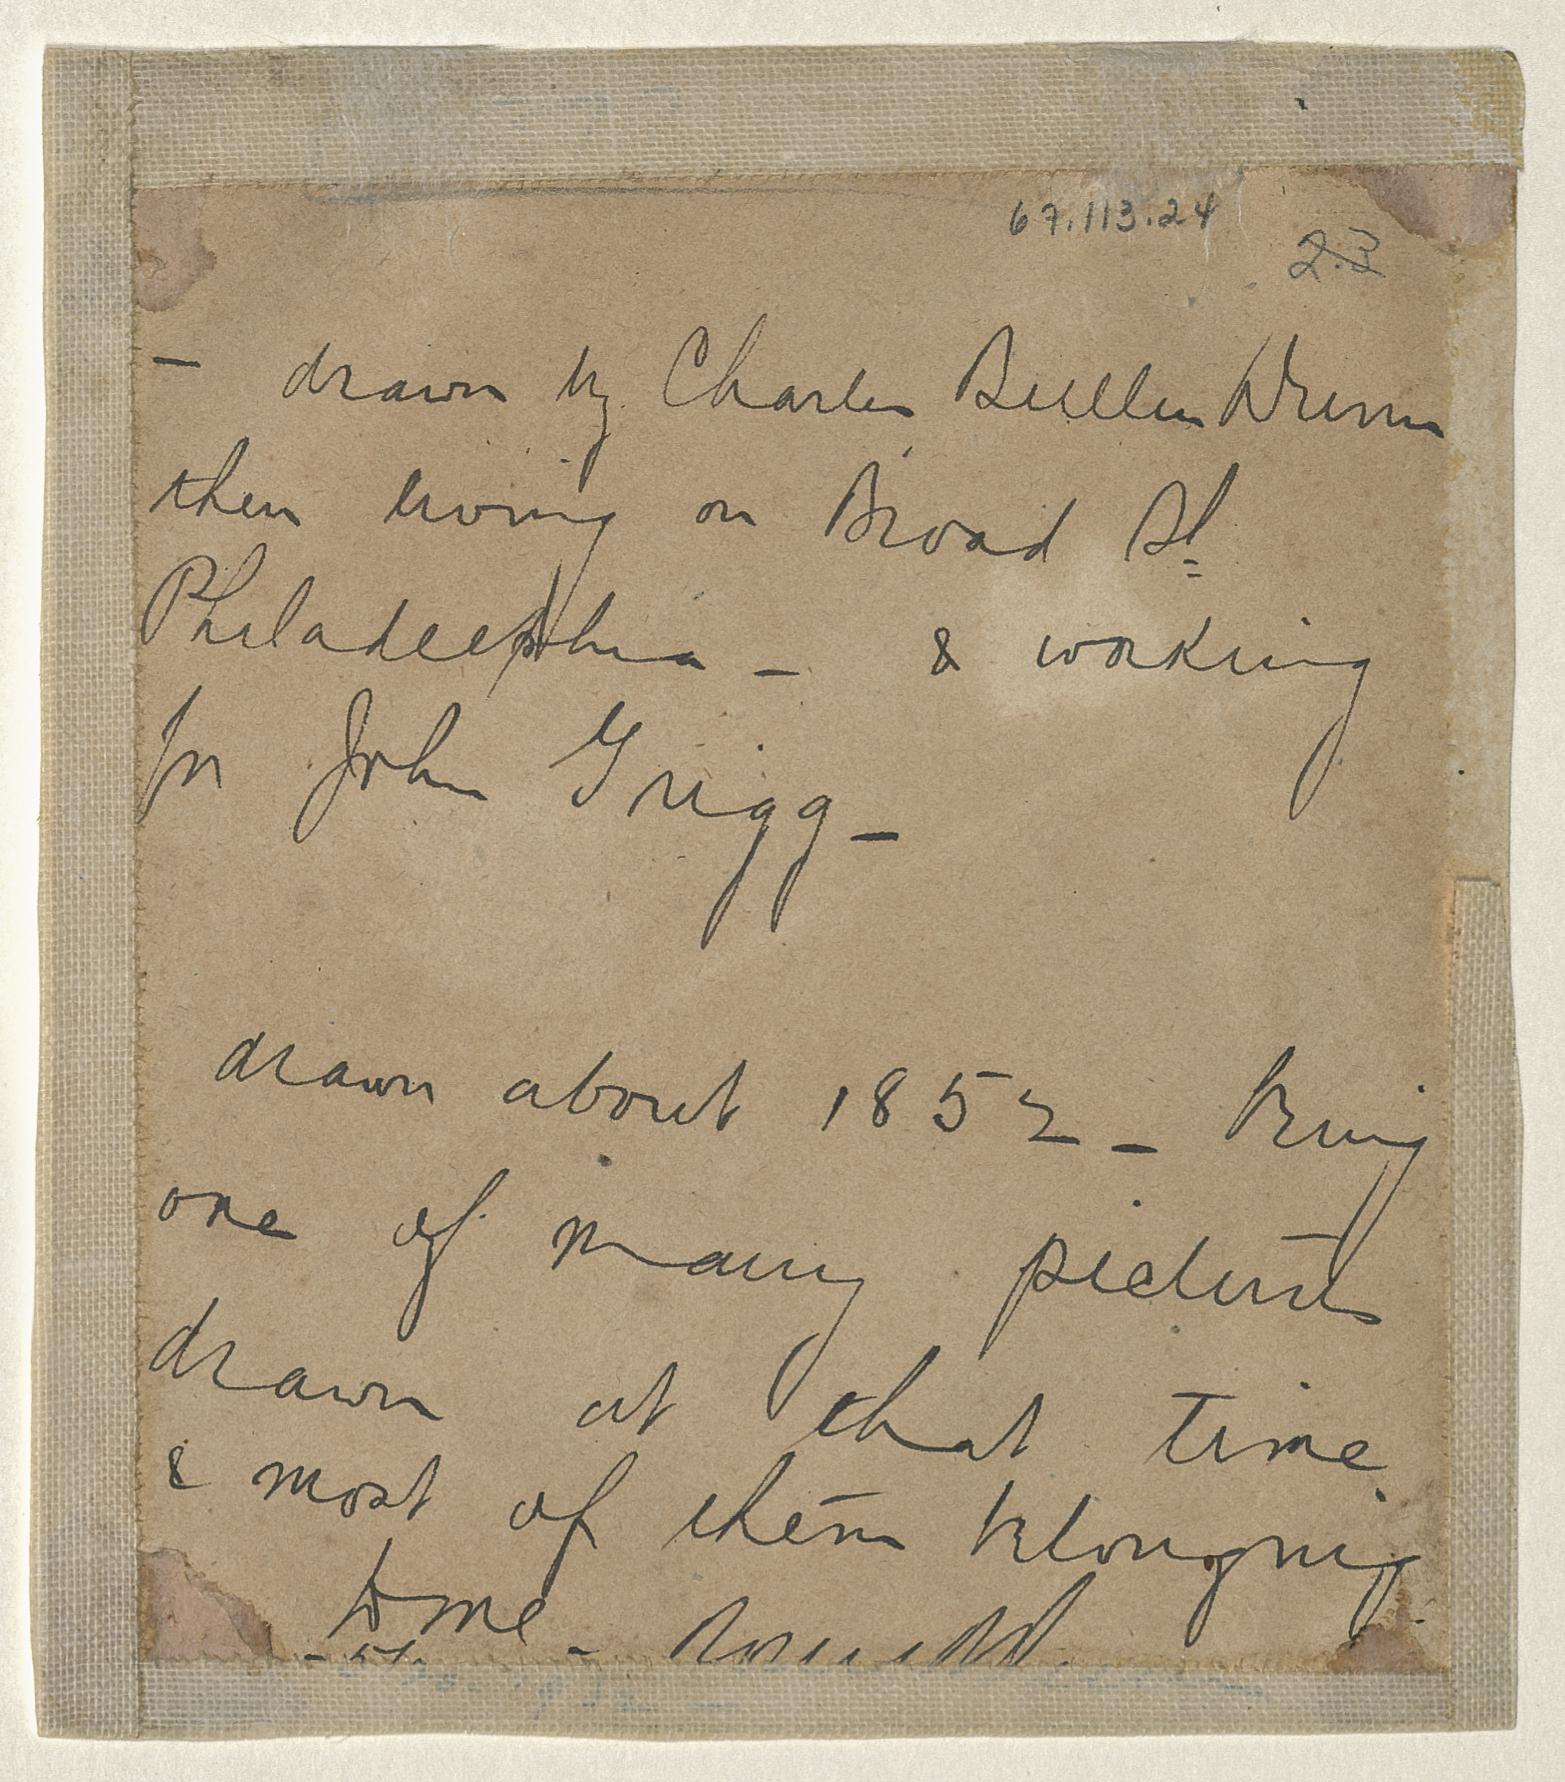 67.113.24
23
– drawn by Charles Bullen
then living on Broad St
Philadelphia – & working
for John Grigg –
drawn about 1852 – being
one of many pictures
drawn at that time
& most of them belonging
to me –